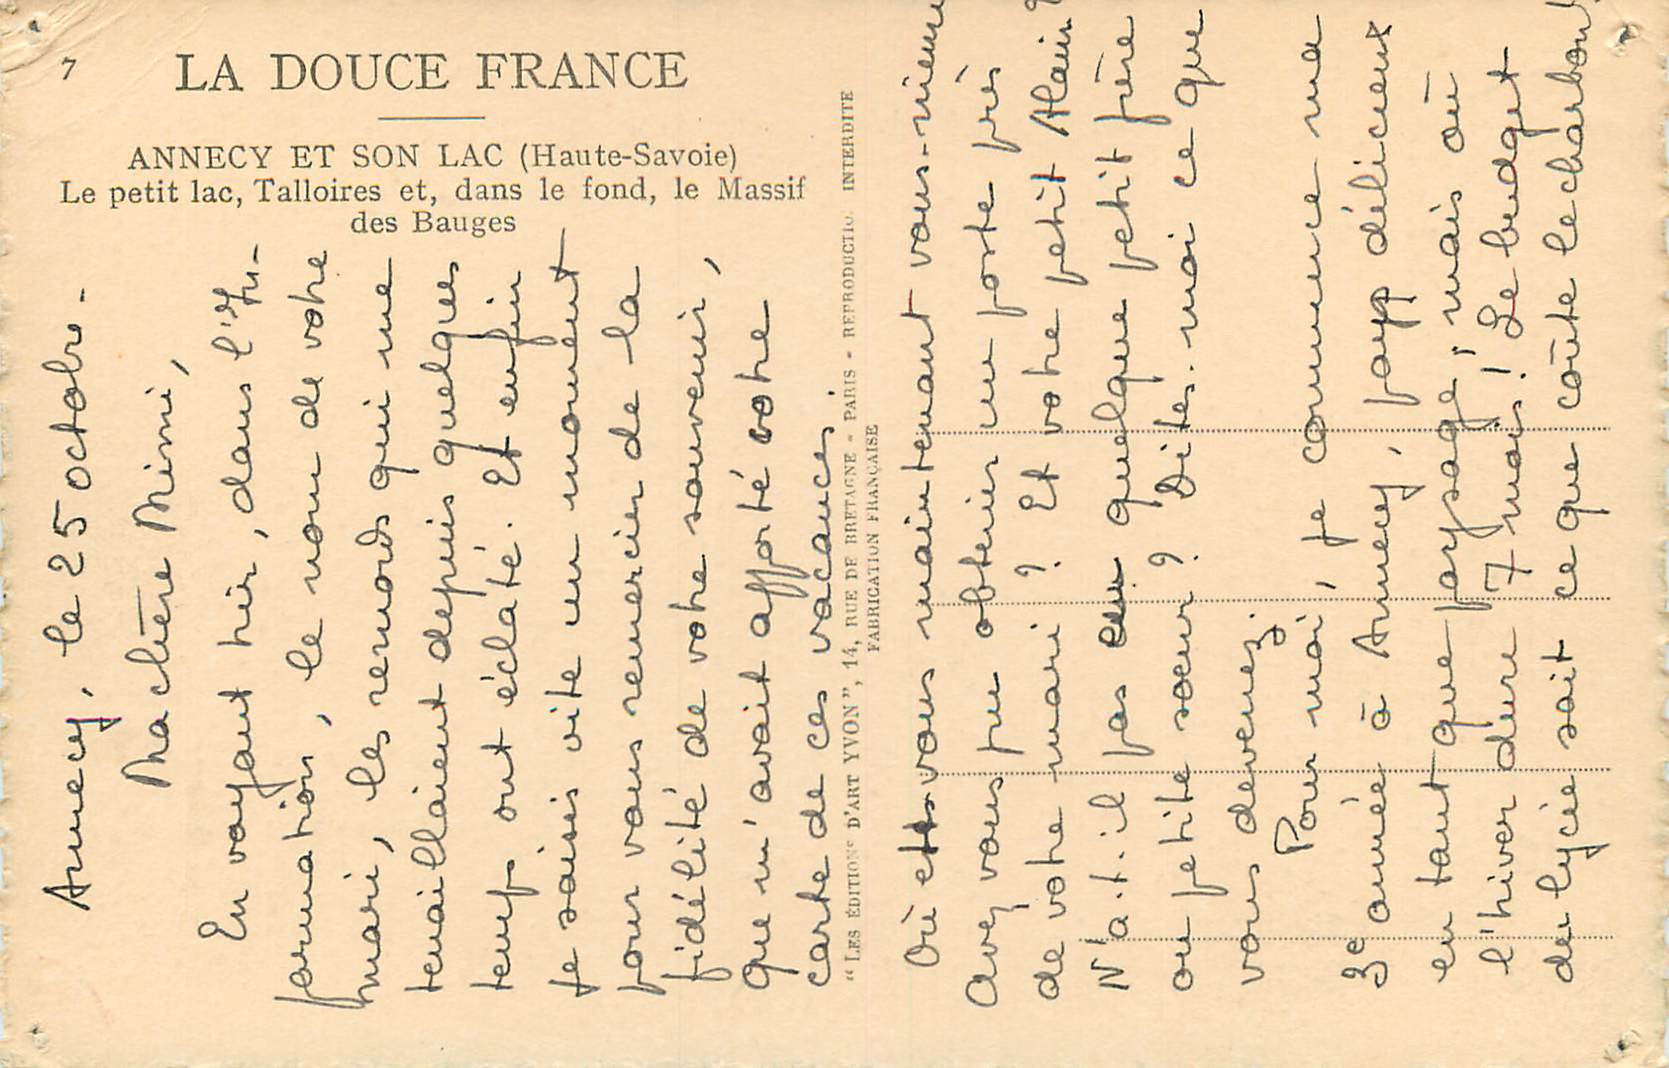 7
LA DOUCE FRANCE
ANNECY ET SON LAC (Haute-Savoie)
Le petit lac, Talloires et, dans le fond, le Massif
des Bauges
Annecy, le 25 octobre -
Ma chère Mimi,
En voyant hier, dans l'In-
formation, le nom de votre
mari, les remords qui me
tenaillaient depuis quelques
temps ont éclaté. Et enfin
je saisis vite un moment
pour vous remercier de la
fidélité de votre souvenir,
que m'avait apporté votre
carte de ces vacances.
"LES ÉDITIONS D'ART YVON", 14, RUE DE BRETAGNE - PARIS - REPRODUCTION INTERDITE
FABRICATION FRANÇAISE
Où êtes vous maintenant vous-même
Avez vous pu obtenir un poste près
de votre mari ? Et votre petit Alain ?
N'a-t-il pas quelque petit frère
ou petite soeur ? Dites-moi ce que
vous devenez.
Pour moi, je commence ma
3e année à Annecy, pays délicieux
en tant que "paysage" mais où
l'hiver dure 7 mois ! Le budget
du lycée sait ce que coûte le charbon!